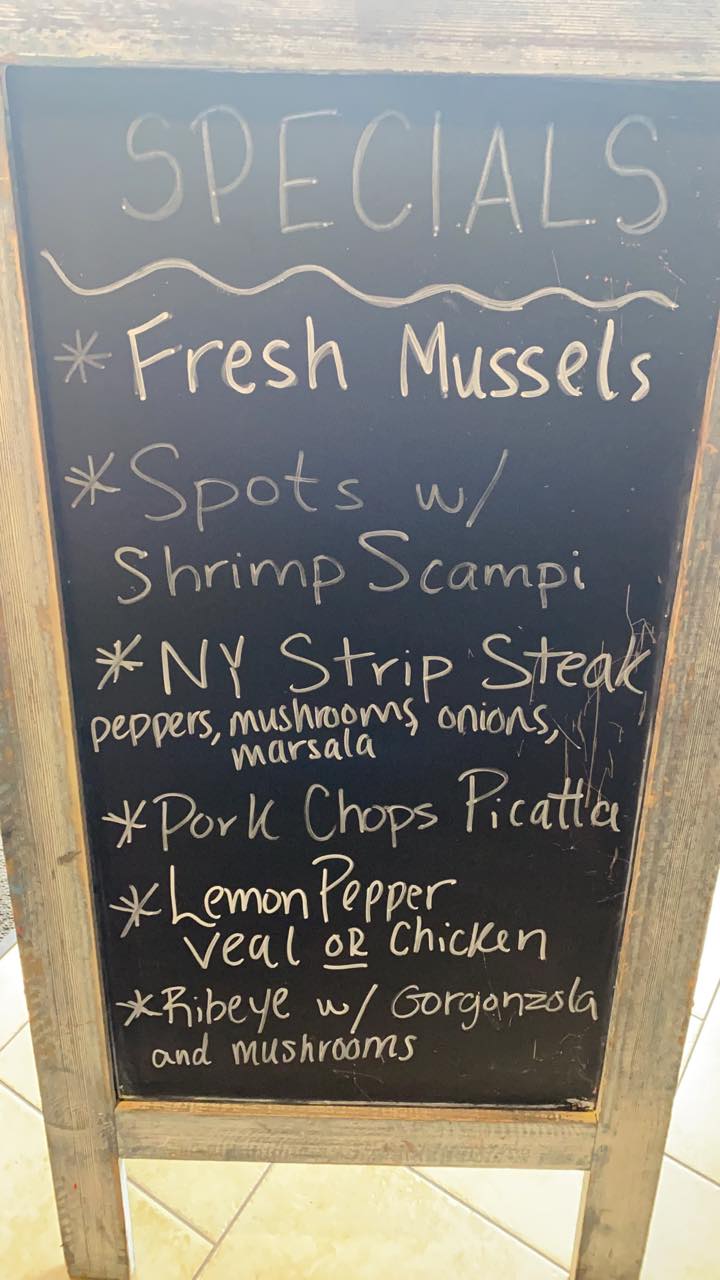 SPECIALS
* Fresh Mussels
* Spots w/
Shrimp Scampi
* NY Strip Steak
peppers, mushrooms, onions,
marsala
* Pork Chops Picatta
* Lemon Pepper
Veal OR Chicken
* Ribeye w/ Gorgonzola
and mushrooms